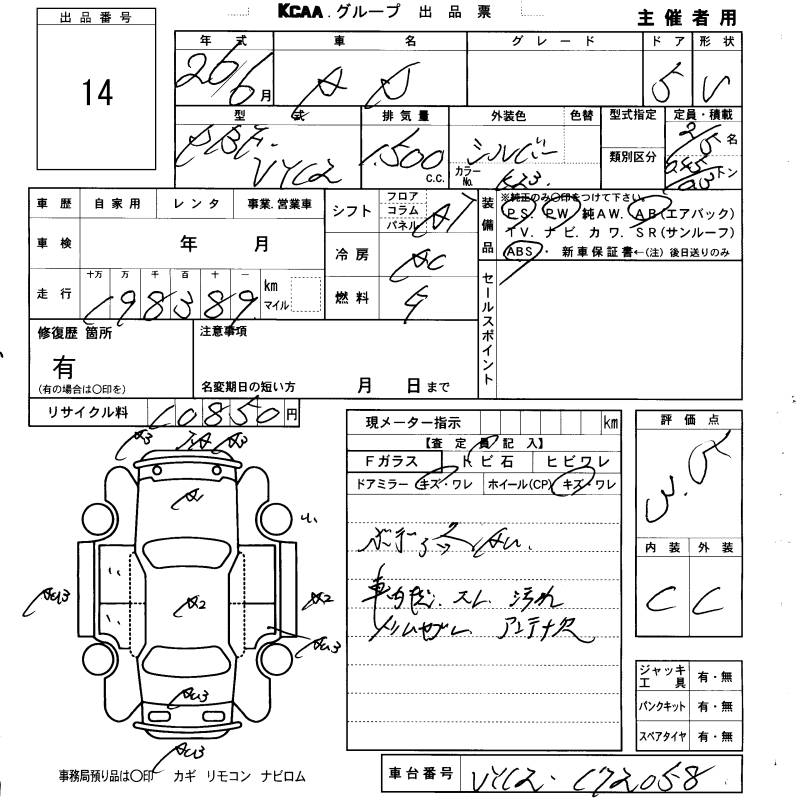 KCAA.グループ 出品票
主催者用
出品番号
14
年式 車名 グレード ドア 形状
26/6月 AD 5 V
型式 排気量 外装色 色替 型式指定 定員・積載
DBF- VY12 1,500 c.c. シルバー カラーNo. K23 類別区分 2/5名 トン
車歴 自家用 レンタ 事業.営業車
シフト フロア コラム パネル AT
装備品 ※純正のみ〇印をつけて下さい。
PS PW 純AW. AB(エアバック)
TV. ナビ. カワ. SR(サンルーフ)
ABS ・ 新車保証書←(注) 後日送りのみ
車検 年 月
冷房 AC
走行 十万 万 千 百 十 一
198389 km マイル
燃料 G
セールスポイント
修復歴 箇所
有
(有の場合は〇印を)
注意事項
名変期日の短い方 月 日まで
リサイクル料 10850円
現メーター指示 km
【査定員記入】
Fガラス トビ石 ヒビワレ
ドアミラー キズ・ワレ ホイール(CP) キズ・ワレ
評価点
3.5
内装 外装
C C
A3 A3
A
AU3 A2 A2
AU3
AU3
AU3
AU.
車内 スレ 汚れ
アンテナ欠
ジャッキ工具 有・無
パンクキット 有・無
スペアタイヤ 有・無
事務局預り品は〇印 カギ リモコン ナビロム
車台番号 VY12-172058